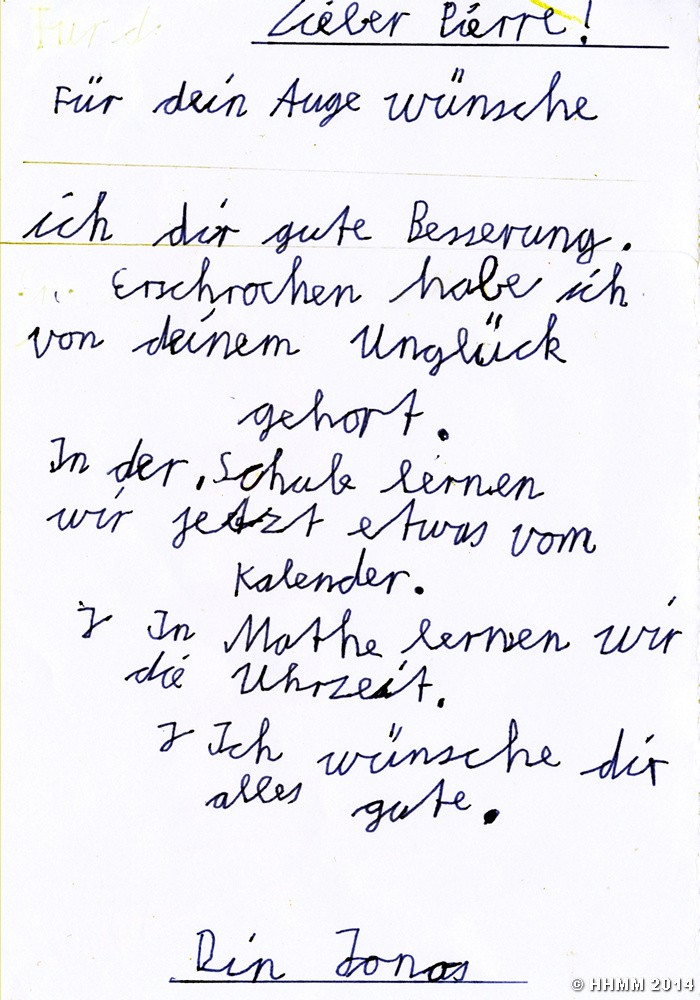 Lieber Pierre!
Für dein Auge wünsche
ich dir gute Besserung.
Erschrochen habe ich
von deinem Unglück
gehort.
In der Schule lernen
wir jetzt etwas vom
Kalender.
In Mathe lernen wir
die Uhrzeit.
Ich wünsche dir
alles gute.
Din Jonas
© HHMM 2014